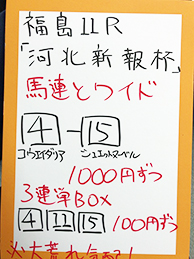 福島11R
「河北新報杯」
馬連とワイド
4-15
コウエイダリア シュエットヌーベル
1000円ずつ
3連単BOX
4 11 15 100円ずつ